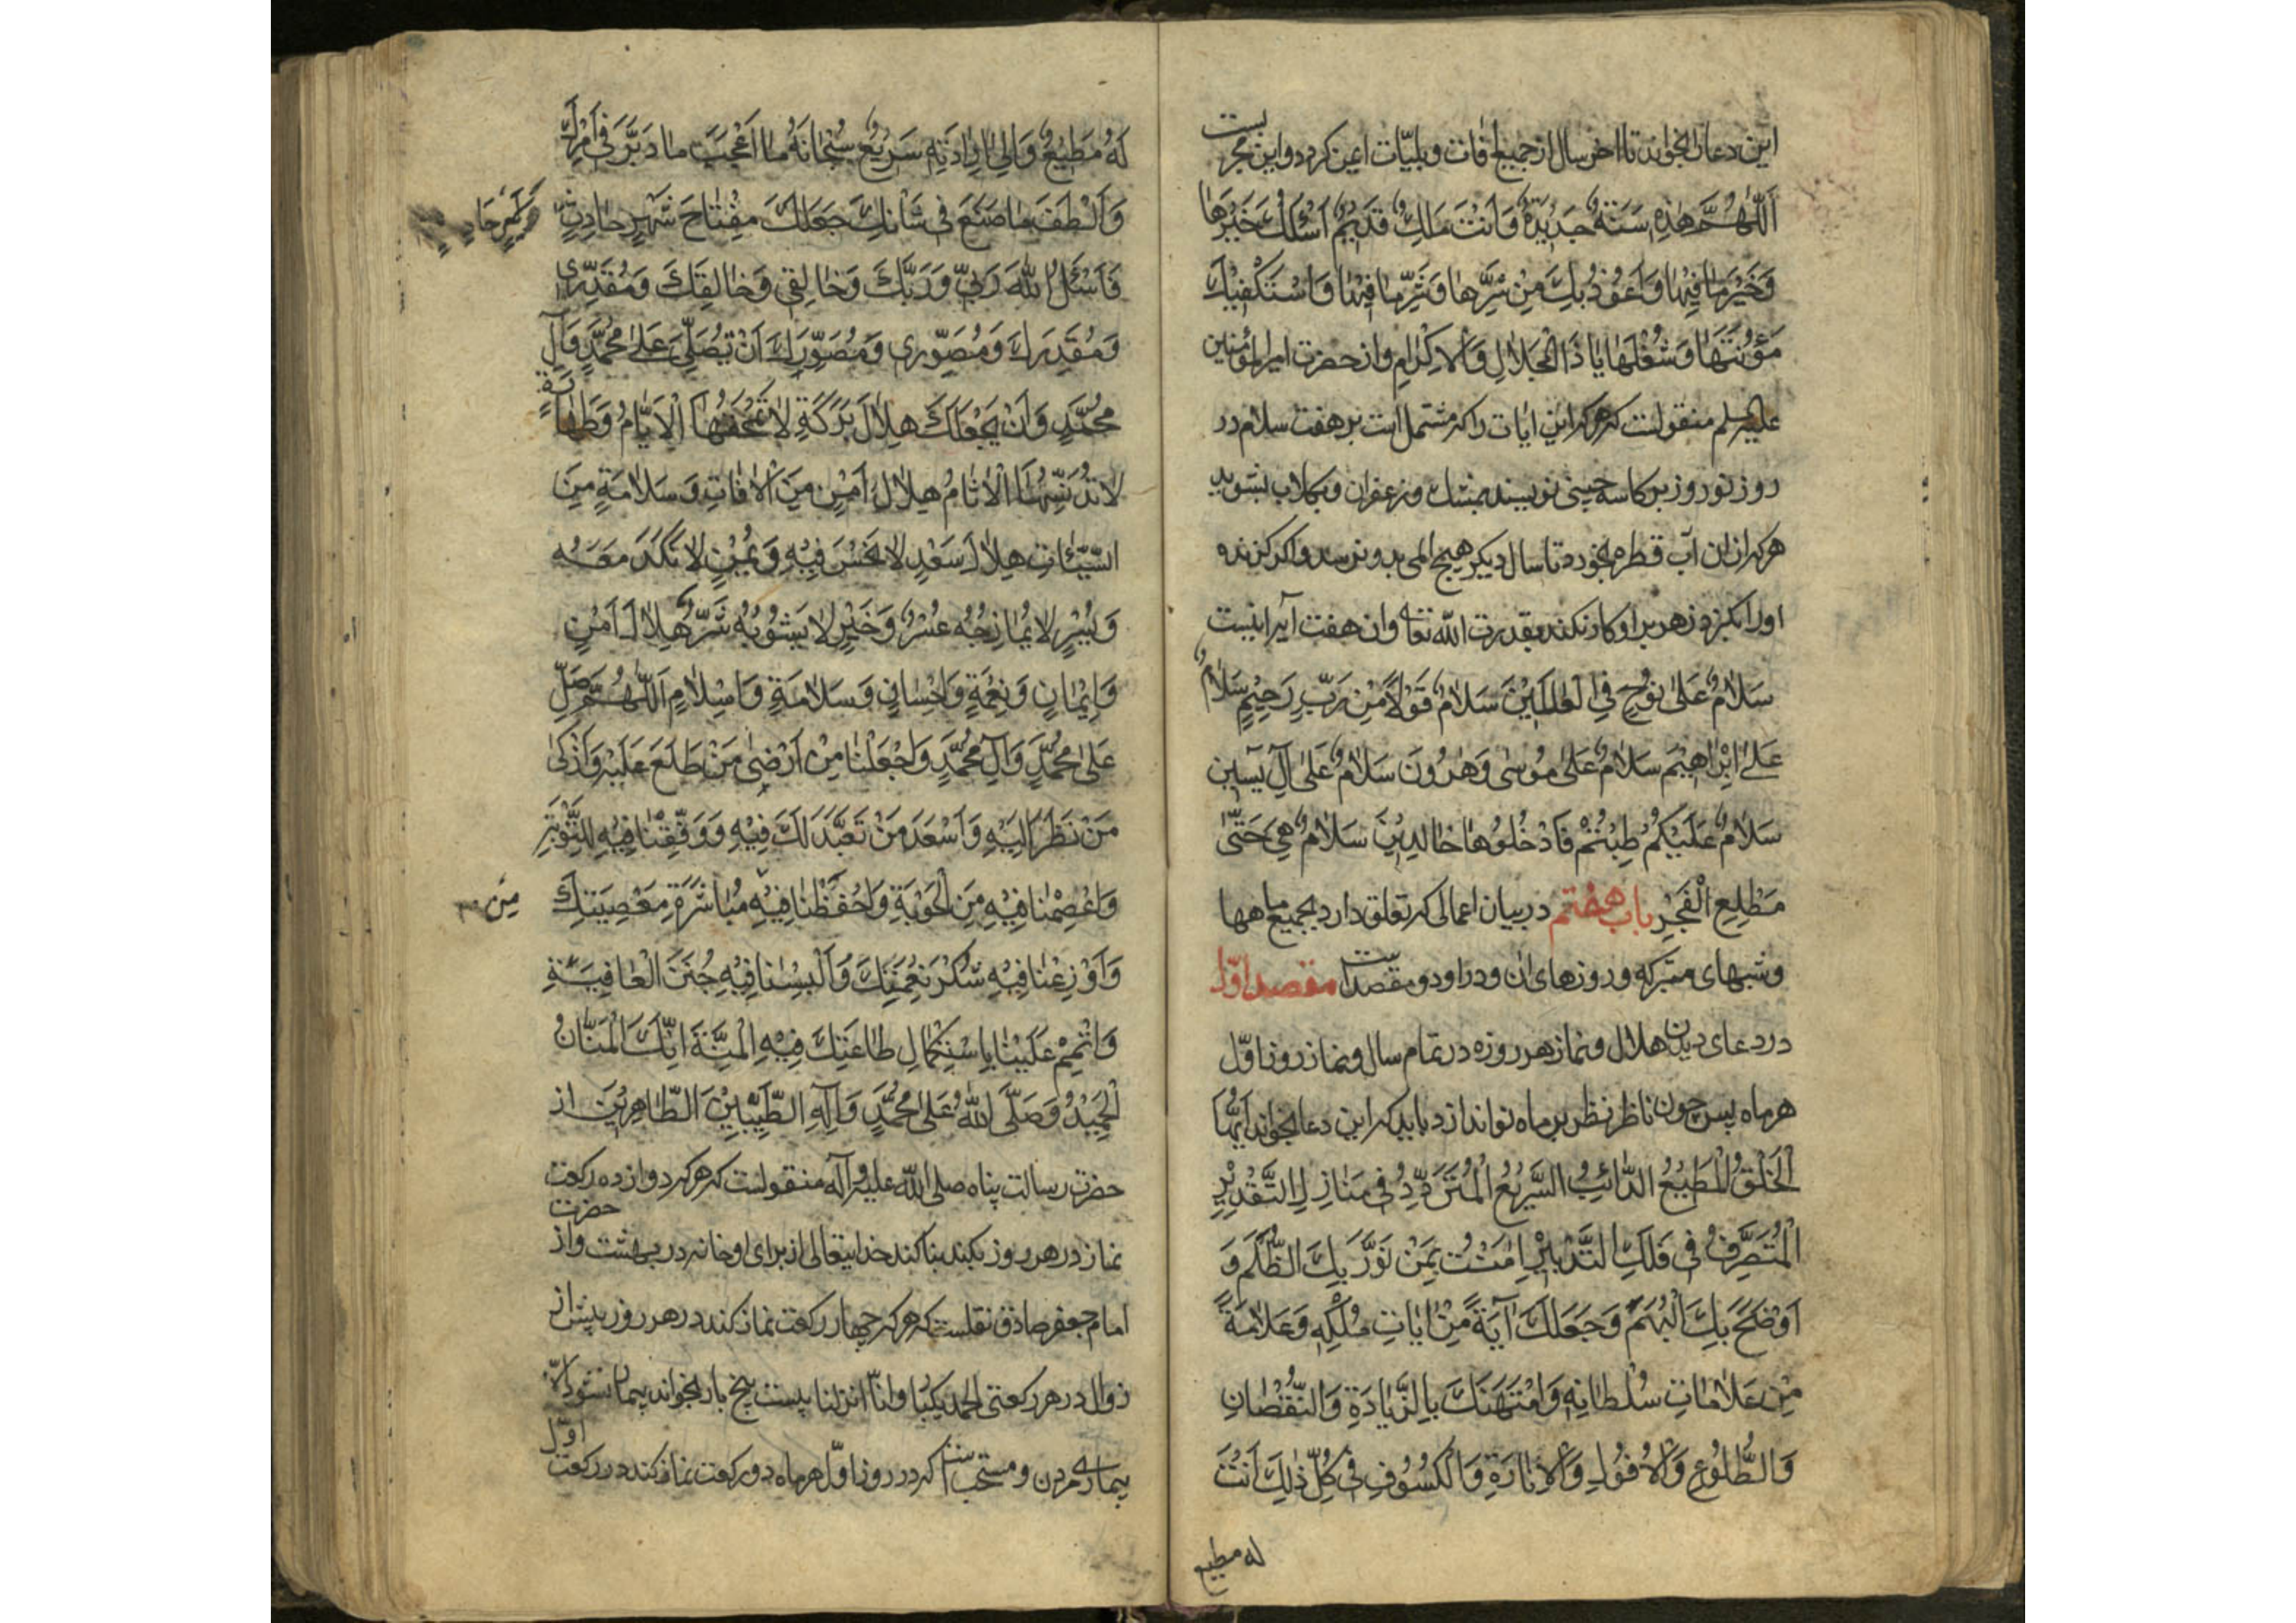 این دعا را بخواند تا اخر سال از جمیع افات و بلیّات ایمن کردد و این مجرّبست
اَللّٰهُمَّ هٰذِهِ سَنَةٌ جَدیدَةٌ وَاَنْتَ مَلِكٌ قَدیمٌ اَسْئَلُكَ خَیْرَهٰا
وَخَیْرَ مٰا فیهٰا وَاَعُوذُ بِكَ مِنْ شَرِّهٰا وَشَرِّ مٰا فیهٰا وَاَسْتَكْفیكَ
مَؤُنَتَهٰا وَشُغْلَهٰا یٰا ذَا الْجَلاٰلِ وَالْاِكْرٰامِ و از حضرت امیر المؤمنین
علیه السلم منقولست که هر که این ایات را که مشتمل است بر هفت سلام در
روز نوروز بر کاسه چینی نویسند بمشك و زعفران و بکلاب بشوید
هر که از ان آب قطره بخورد تا سال دیکر هیچ المی بدو نرسد و اکر کزنده
او را بکزد زهر بر او کار نکند بقدرت الله تعه و ان هفت آیه اینست
سَلاٰمٌ عَلیٰ نوُحٍ فِی الْعٰالَمینَ سَلاٰمٌ قَوْلاً مِنْ رَبٍّ رَحیمٍ سَلاٰمٌ
عَلیٰ اِبْرٰاهیمَ سَلاٰمٌ عَلیٰ مُوسیٰ وَهٰرُونَ سَلاٰمٌ عَلیٰ آلِ یٓسٓین
سَلاٰمٌ عَلَیْكُمْ طِبْتُمْ فَادْخُلُوهٰا خٰالِدینَ سَلاٰمٌ هِیَ حَتّیٰ
مَطْلَعِ الْفَجْرِ باب هفتم در بیان اعمالی که تعلق دارد بجمیع ماهها
و شبهای متبرکه و روزهای ان و در او دو مقصد است مقصد اوّل
در دعای دیدن هلال و نماز هر روزه در تمام سال و نماز روز اوّل
هر ماه پس چون ناظر نظر بر ماه نو اندازد باید که این دعا بخواند اَیُّهَا
الْخَلْقُ الْمُطیعُ الدّٰائِبُ السَّریعُ الْمُتَرَدِّدُ فی مَنٰازِلِ التَّقْدیرِ
الْمُتَصَرِّفُ فی فَلَكِ التَّدْبیرِ اٰمَنْتُ بِمَنْ نَوَّرَ بِكَ الظُّلَمَ وَ
اَوْضَحَ بِكَ الْبُهَمَ وَجَعَلَكَ آیَةً مِنْ اٰیٰاتِ مُلْكِهِ وَعَلاٰمَةً
مِنْ عَلاٰمٰاتِ سُلْطٰانِهِ وَامْتَهَنَكَ بِالزِّیٰادَةِ وَالنُّقْصٰانِ
وَالطُّلُوعِ وَالْاُفُولِ وَالْاِنٰارَةِ وَالْكُسُوفِ فی كُلِّ ذٰلِكَ اَنْتَ
له مطیع
لَهُ مُطیعٌ وَاِلیٰ اِرٰادَتِهِ سَریعٌ سُبْحٰانَهُ مٰا اَعْجَبَ مٰا دَبَّرَ فی اَمْرِكَ
وَاَلْطَفَ مٰا صَنَعَ فی شَأْنِكَ جَعَلَكَ مِفْتٰاحَ شَهْرٍ حٰادِثٍ
فَاَسْئَلُ اللهَ رَبّی وَرَبَّكَ وَخٰالِقی وَخٰالِقَكَ وَمُقَدِّری
وَمُقَدِّرَكَ وَمُصَوِّری وَمُصَوِّرَكَ اَنْ یُصَلِّیَ عَلیٰ مُحَمَّدٍ وَآلِ
مُحَمَّدٍ وَاَنْ یَجْعَلَكَ هِلاٰلَ بَرَكَةٍ لاٰ تَمْحَقُهَا الْاَیّٰامُ وَطَهٰارَةٍ
لاٰ تُدَنِّسُهَا الْاٰثٰامُ هِلاٰلَ اَمْنٍ مِنَ الْاٰفٰاتِ وَسَلاٰمَةٍ مِنَ
السَّیِّئٰاتِ هِلاٰلَ سَعْدٍ لاٰ نَحْسَ فیهِ وَیُمْنٍ لاٰ نَكَدَ مَعَهُ
وَیُسْرٍ لاٰ یُمٰازِجُهُ عُسْرٌ وَخَیْرٍ لاٰ یَشُوبُهُ شَرٌّ هِلاٰلَ اَمْنٍ
وَایمٰانٍ وَنِعْمَةٍ وَاِحْسٰانٍ وَسَلاٰمَةٍ وَاِسْلاٰمٍ اَللّٰهُمَّ صَلِّ
عَلیٰ مُحَمَّدٍ وَآلِ مُحَمَّدٍ وَاجْعَلْنٰا مِنْ اَرْضیٰ مَنْ طَلَعَ عَلَیْهِ وَاَزْكیٰ
مَنْ نَظَرَ اِلَیْهِ وَاَسْعَدَ مَنْ تَعَبَّدَ لَكَ فیهِ وَوَفِّقْنٰا فیهِ لِلتَّوْبَةِ
وَاعْصِمْنٰا فیهِ مِنَ الْحَوْبَةِ وَاحْفَظْنٰا فیهِ مُبٰاشَرَةِ مَعْصِیَتِكَ
مِن
وَاَوْزِعْنٰا فیهِ شُكْرَ نِعْمَتِكَ وَاَلْبِسْنٰا فیهِ جُنَنَ الْعٰافِیَةِ
وَاَتْمِمْ عَلَیْنٰا بِاسْتِكْمٰالِ طٰاعَتِكَ فیهِ الْمِنَّةَ اِنَّكَ الْمَنّٰانُ
الْحَمیدُ وَصَلَّی اللهُ عَلیٰ مُحَمَّدٍ وَآلِهِ الطَّیِّبینَ الطّٰاهِرینَ از
حضرت رسالت پناه صلی الله علیه وآله منقولست که هر که دوازده رکعت
نماز در هر روز بکند بنا کند خدایتعالی از برای او خانه در بهشت و از حضرت
امام جعفر صادق نقلست که هر که چهار رکعت نماز کند در هر روز پیش از
زوال در هر رکعتی الحمد یکبار و انّا انزلنا بیست پنج بار بخواند بیمار نشود الّا
بیماری مردن و مستحب است که در روز اوّل هر ماه دو رکعت نماز کند در رکعت اوّل